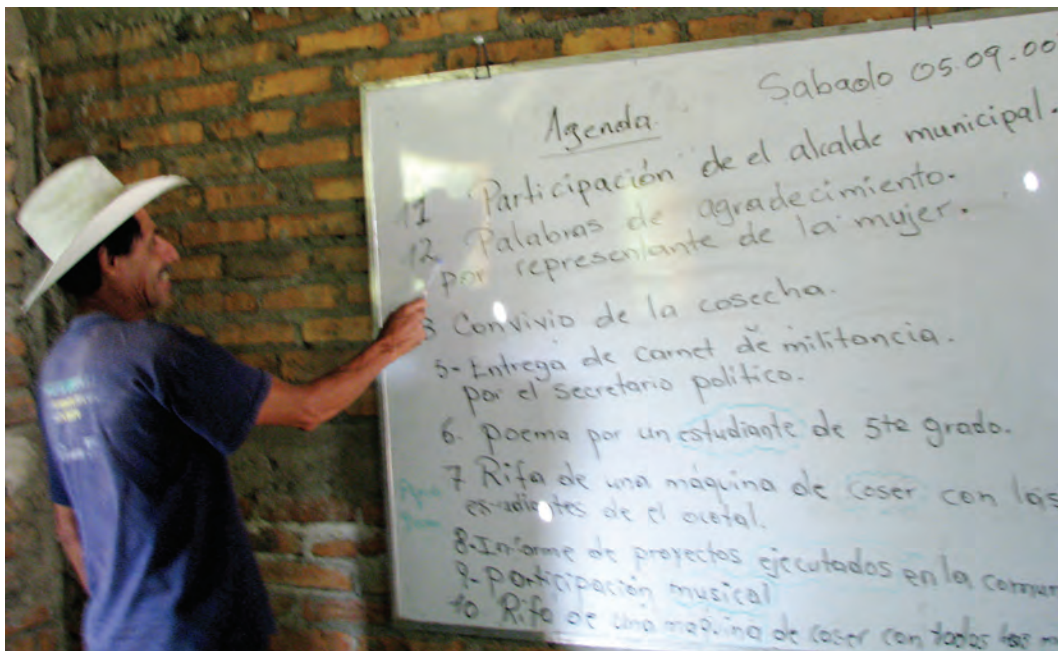 Sabado 05.09.00
Agenda.
11 Participación de el alcalde municipal.
12 Palabras de agradecimiento.
por representante de la mujer.
3 Convivio de la cosecha.
5- Entrega de carnet de militancia.
por el secretario politico.
6. poema por un estudiante de 5to grado.
7 Rifa de una máquina de coser con las
estudiantes de el ocotal.
8-Informe de proyectos ejecutados en la
9- participación musical
10 Rifa de una maquina de coser con todas las